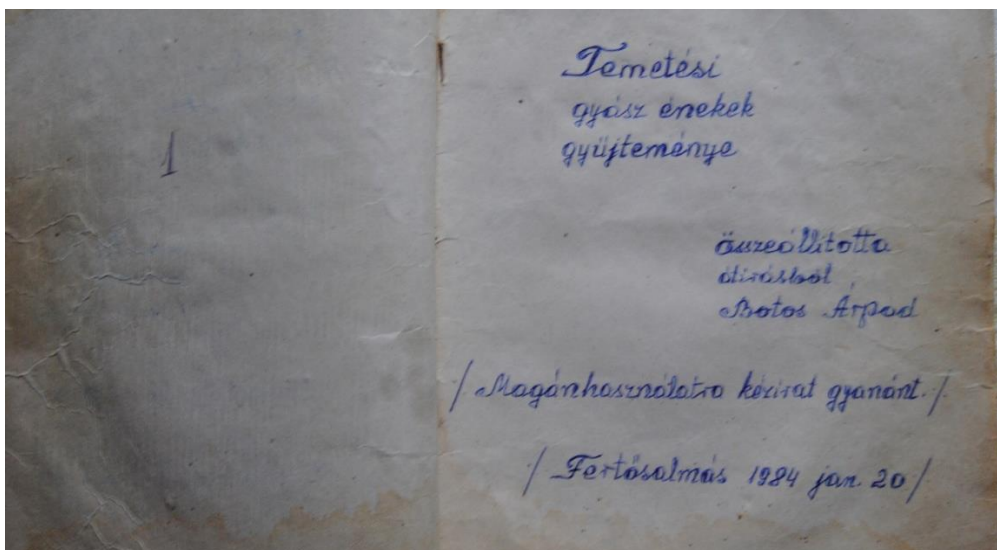 1
Temetési
gyász énekek
gyüjteménye
összeállította
átirásból
Botos Árpád
/ Magánhasználatra kézirat gyanánt. /
/ Fertősalmás 1984 jan. 20 /